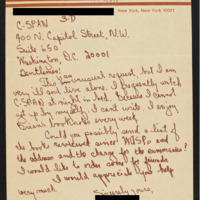 New York, New York 10021
C-SPAN 3-D
400 N. Capitol Street, N.W.
Suite 650
Washington, D.C. 20001
Gentlemen:
This is an unusual request, but I am
very ill and live alone. I frequently watch
C-SPAN at night in bed. Because I cannot
get up by myself, I can't write. I enjoy
Brian's book every week.
Could you possibly send a list of
the books reviewed since and
the address and the charge for the summaries?
I would like to order some for friends.
I would appreciate your help
very much.
Sincerely yours,